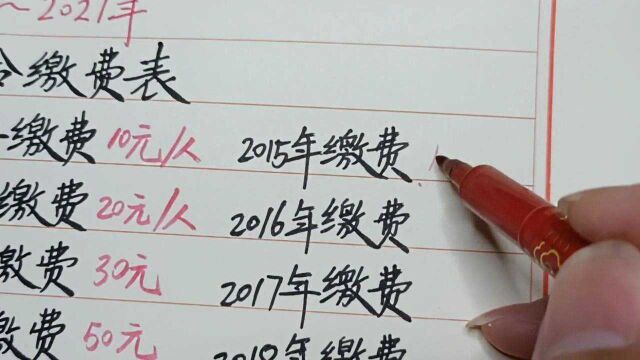 ~2021年
缴费表
缴费 10元/人 2015年缴费
缴费 20元/人 2016年缴费
缴费 30元 2017年缴费
缴费 50元 2018年缴费